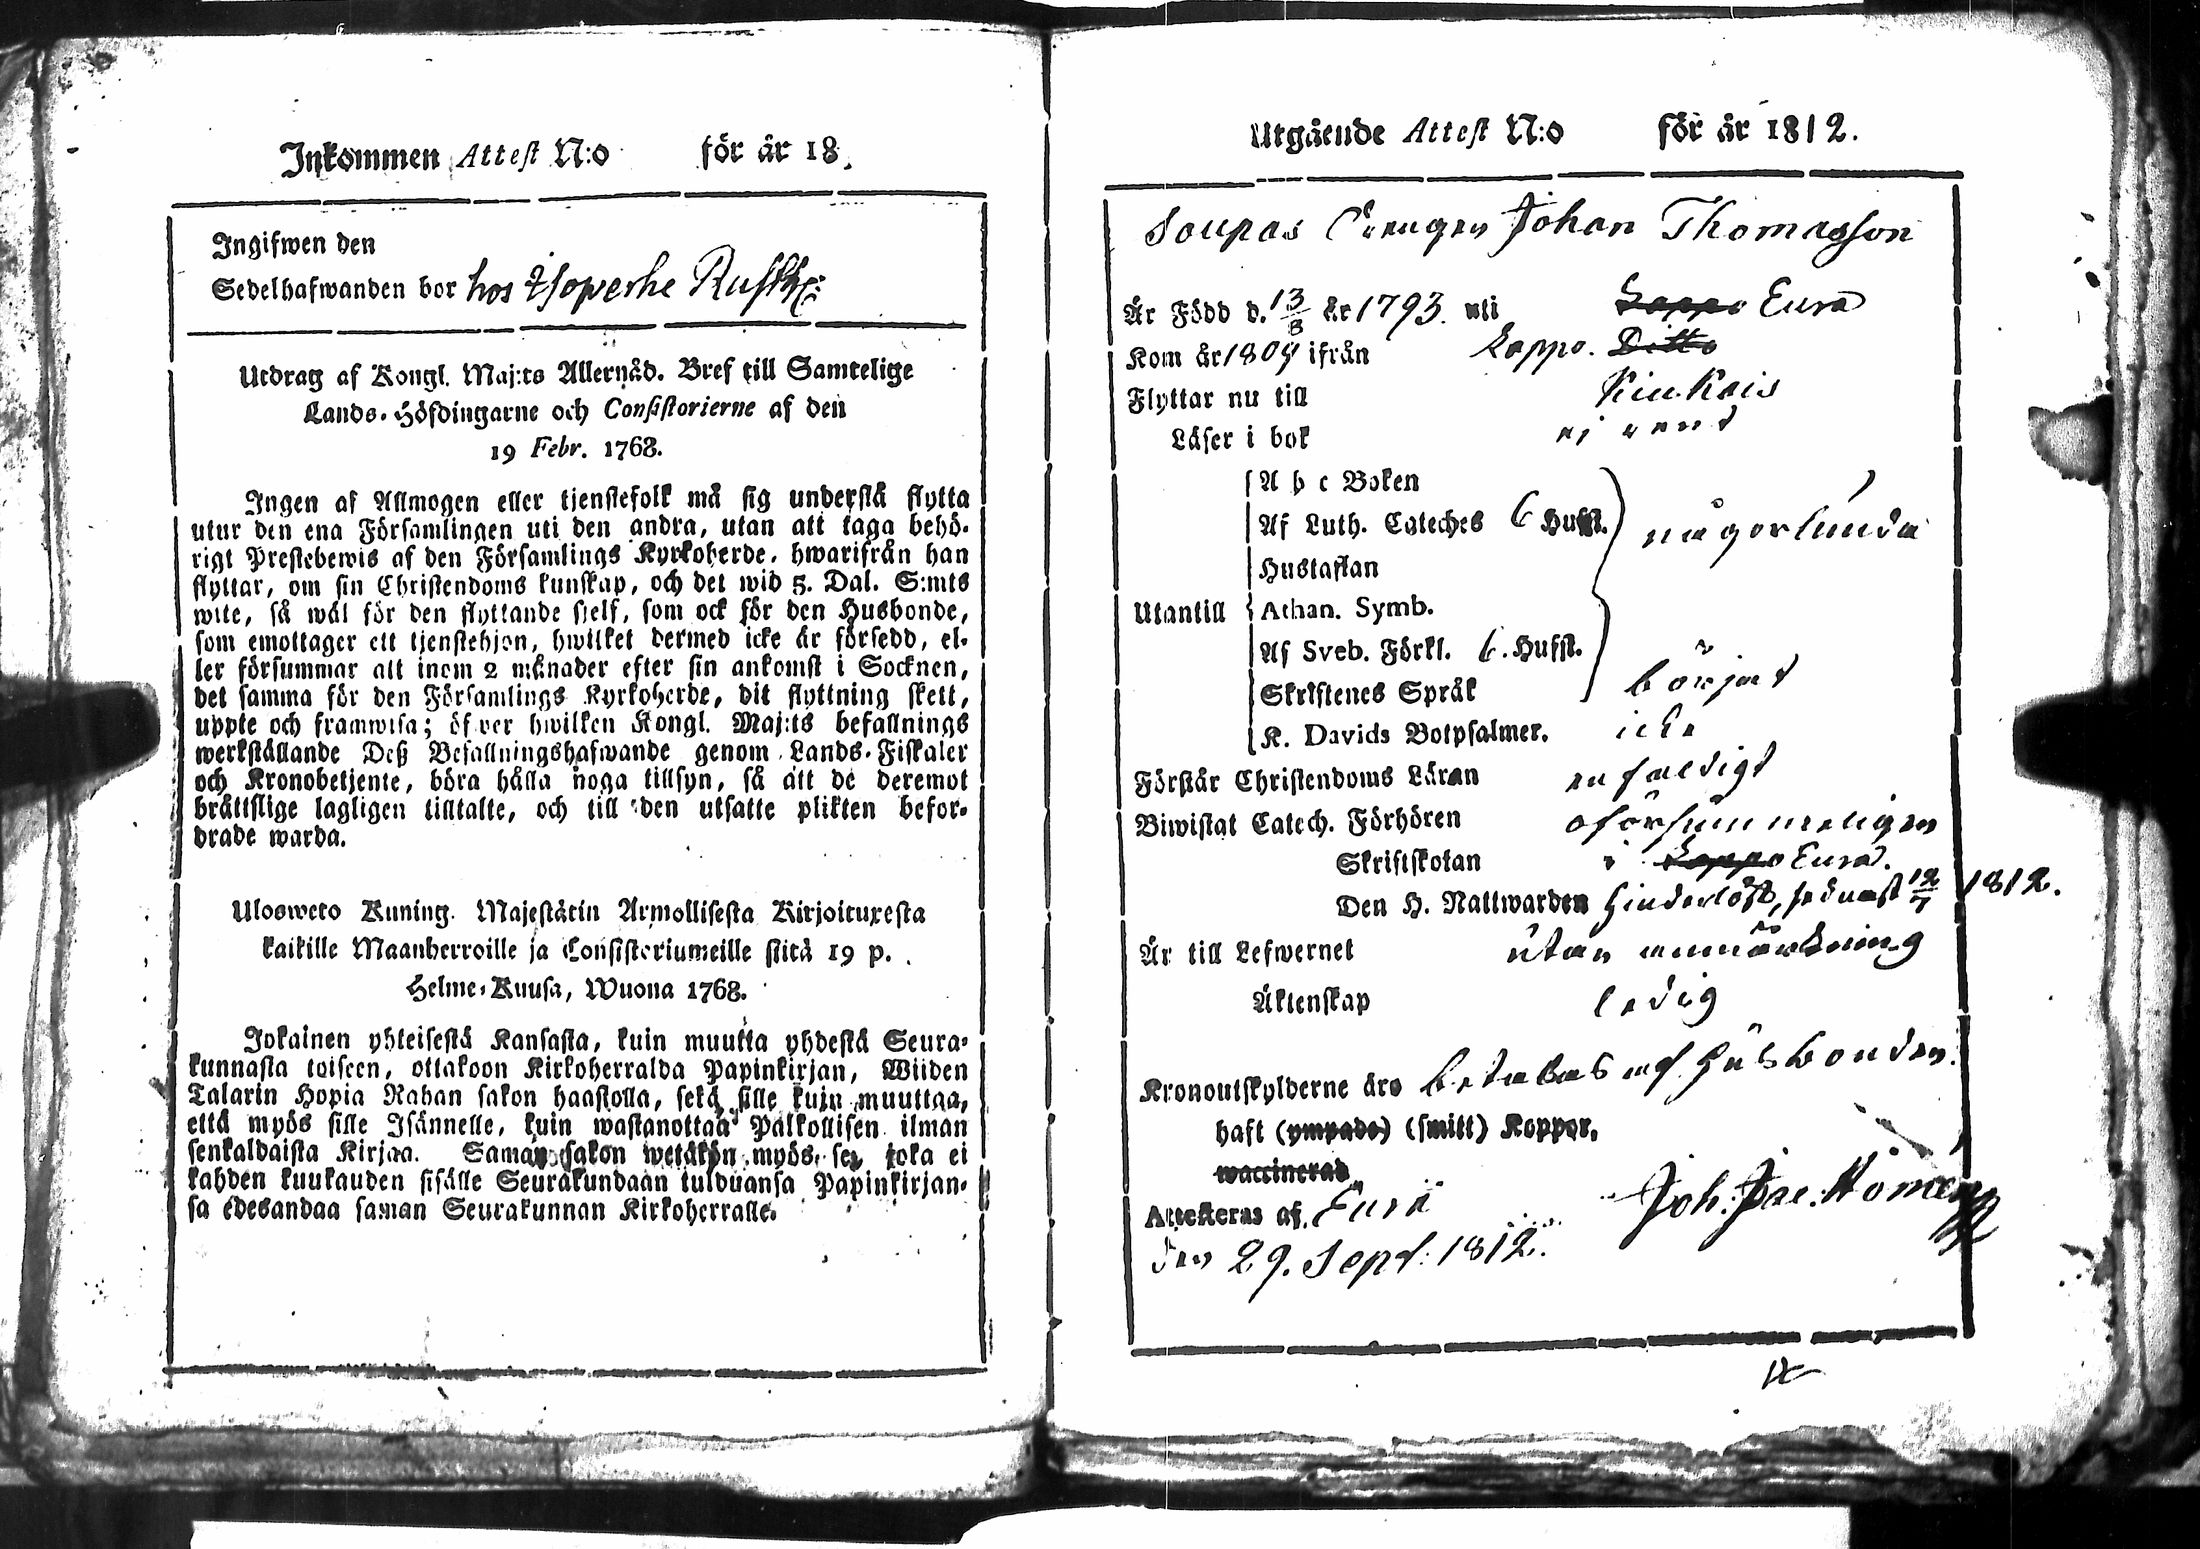 Inkommen Attest N:o för år 18
Ingifwen den
Sedelhafwanden bor hos
Utdrag af Kongl. Maj:ts Allernåd. Bref till Samtelige
Lands-Höfdingarne och Consistorierne af den
19 Febr. 1768.
Ingen af Allmogen eller tjenstefolk må sig understå flytta
utur den ena Församlingen uti den andra, utan att taga behö-
rigt Prestebewis af den Församlings Kyrkoherde, hwarifrån han
flyttar, om sin Christendoms kunskap, och det wid 5. Dal. S:mts
wite, så wäl för den flyttande sjelf, som ock för den Husbonde,
som emottager ett tjenstehjon, hwilket dermed icke är försedd, el-
ler försummar att inom 2 månader efter sin ankomst i Socknen,
det samma för den Församlings Kyrkoherde, dit flyttning skett,
uppte och framwisa; öfver hwilken Kongl. Maj:ts befallnings
werkställande Deß Befallningshafwande genom Lands-Fiskaler
och Kronobetjente, böra hålla noga tillsyn, så att de deremot
bråttslige lagligen tilltalte, och till den utsatte plikten befor-
drade warda.
Ulosweto Kuning. Majestätin Armollisesta Kirjoituxesta
kaikille Maanherroille ja Consistoriumeille siitä 19 p.
Helme-Kuusa, Wuona 1768.
Jokainen yhteisestä Kansasta, kuin muutta yhdestä Seura-
kunnasta toiseen, ottakoon Kirkoherralda Papinkirjan, Wiiden
Talarin Hopia Rahan sakon haastolla, sekä sille kuin muuttaa,
että myös sille Isännelle, kuin wastanottaa Palkollisen ilman
senkaldaista Kirjaa. Saman sakon wetäkön myös se, joka ei
kahden kuukauden sisälle Seurakundaan tulduansa Papinkirjan-
sa edesandaa saman Seurakunnan Kirkoherralle.
Utgående Attest N:o för år 1812.
Soupas Drengen Johan Thomasson
Är Född d. 13/8 år 1793. uti Kappo Eura
Kom år 1809 ifrån Kappo. Ditto
Flyttar nu till Kiukais
Läser i bok ej rent
A b c Boken
Af Luth. Cateches 6 Hufst. någorlunda
Hustaflan
Utantill Athan. Symb.
Af Sveb. Förkl. 6. Hufst.
Skriftenes Språk börjat
K. Davids Botpsalmer. icke
Förstår Christendoms Läran enfaldigt
Biwistat Catech. Förhören oförsummeligen
Skriftskolan i Kappo Eura.
Den H. Nattwarden hinderlöst, sednast 12/7 1812.
Är till Lefwernet utan anmärkning
Äktenskap ledig
Kronoutskylderne äro betalas af Husbonden.
haft (ympade) (smitt) Koppor,
waccinerad
Attesteras af Eura Joh: Jac:
den 29. Sept: 1812.